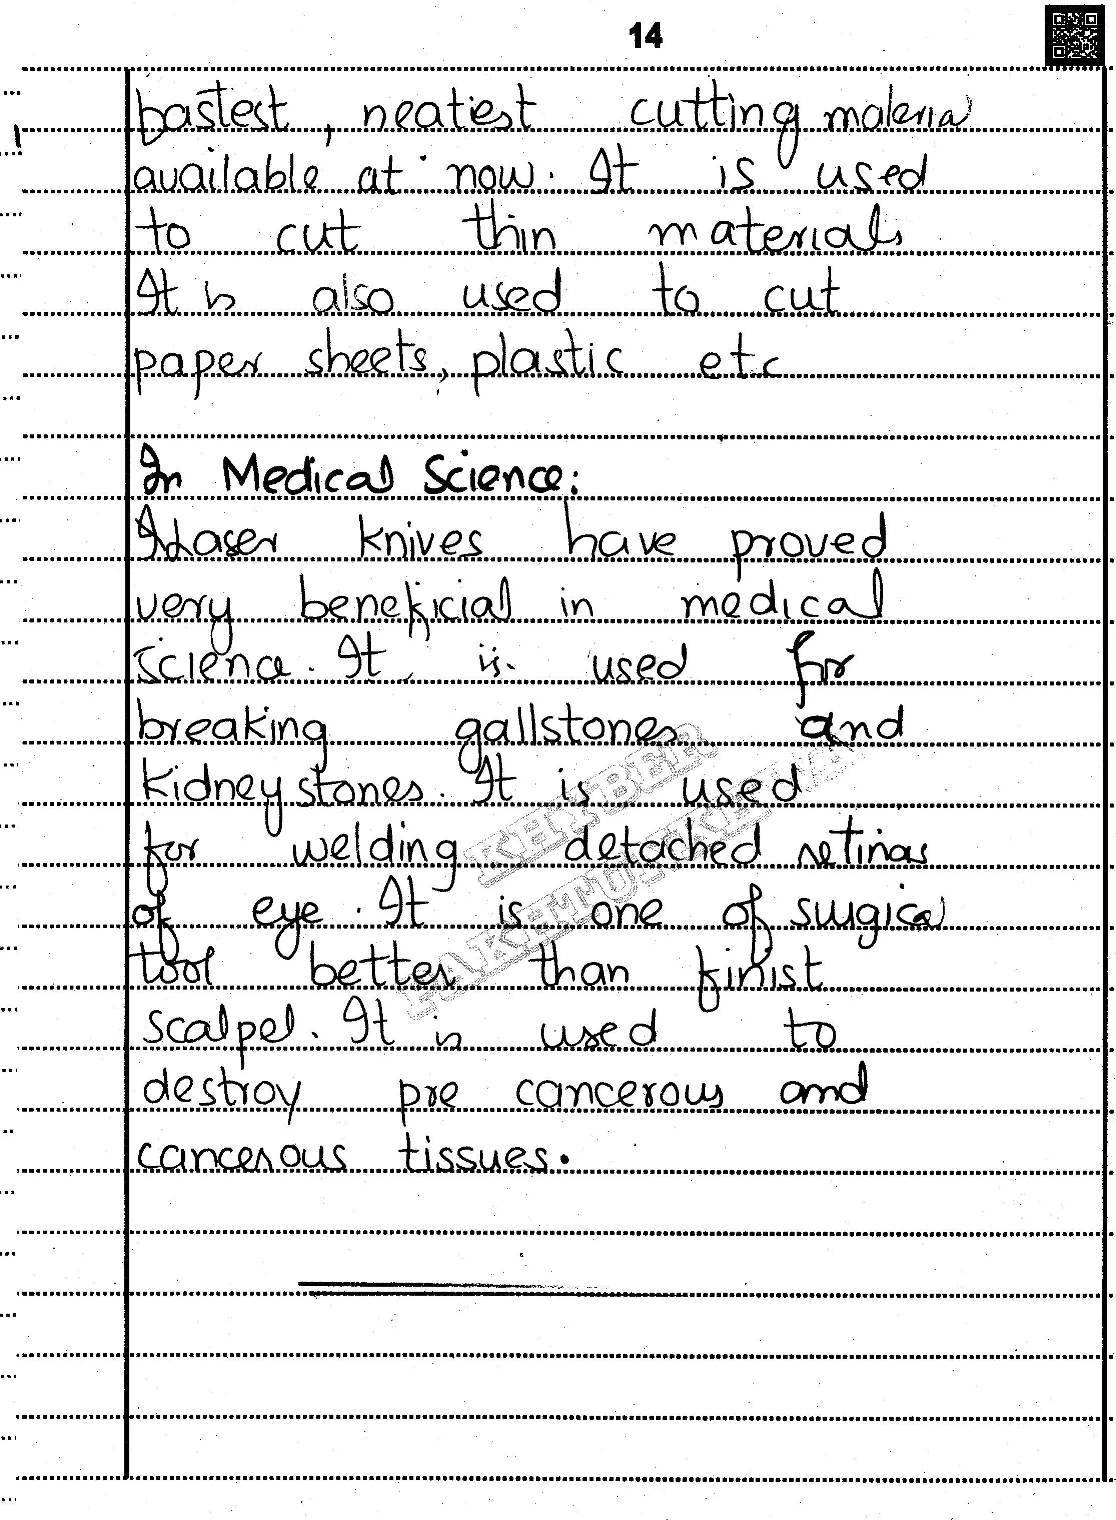 14
bastest, neatiest cutting materia
available at now. It is used
to cut thin materials
It is also used to cut
paper sheets, plastic etc
In Medical Science:
Laser knives have proved
very beneficial in medical
science. It is used for
breaking gallstones and
kidney stones. It is used
for welding detached retinas
of eye. It is one of surgical
tool better than finist
scalpel. It is used to
destroy pre cancerous and
cancerous tissues.
KHYBER
PAKHTUNKHWA